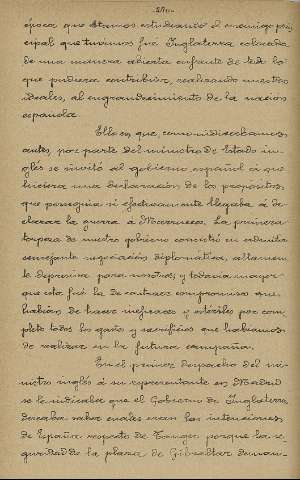 época que étamos estudiando el enemigo prin
cipal que tuvimos fué Inglaterra colocada
de una manera abierta enfrente de todo lo
que pudiera contribuir, realizando nuestros
ideales, al engrandecimiento de la nación
española.
Ello es, que, como indicabamos
antes, por parte del ministro de Estado in-
glés se invitó al gobierno español á que
hiciera una declaración de los propósitos,
que perseguía si efectivamente llegaba á de-
clarar la guerra a Marruecos. La primera
torpeza de nuestro gobierno consistió en admitir
semejante negociación diplomatica, altamen
te depresiva para nosotros; y todavia mayor
que esta fué la de contraer compromisos que
habian de hacer ineficaces y estériles por com
pleto todos los gastos y sacrificios que habiamos
de realizar en la futura campaña.
En el primer despacho del mi-
nistro inglés á su representante en Madrid
se le indicaba que el Gobierno de Inglaterra
deseaba saber cuales eran las intenciones
de España respecto de Tanger, porque la se-
guridad de la plaza de Gibraltar deman-